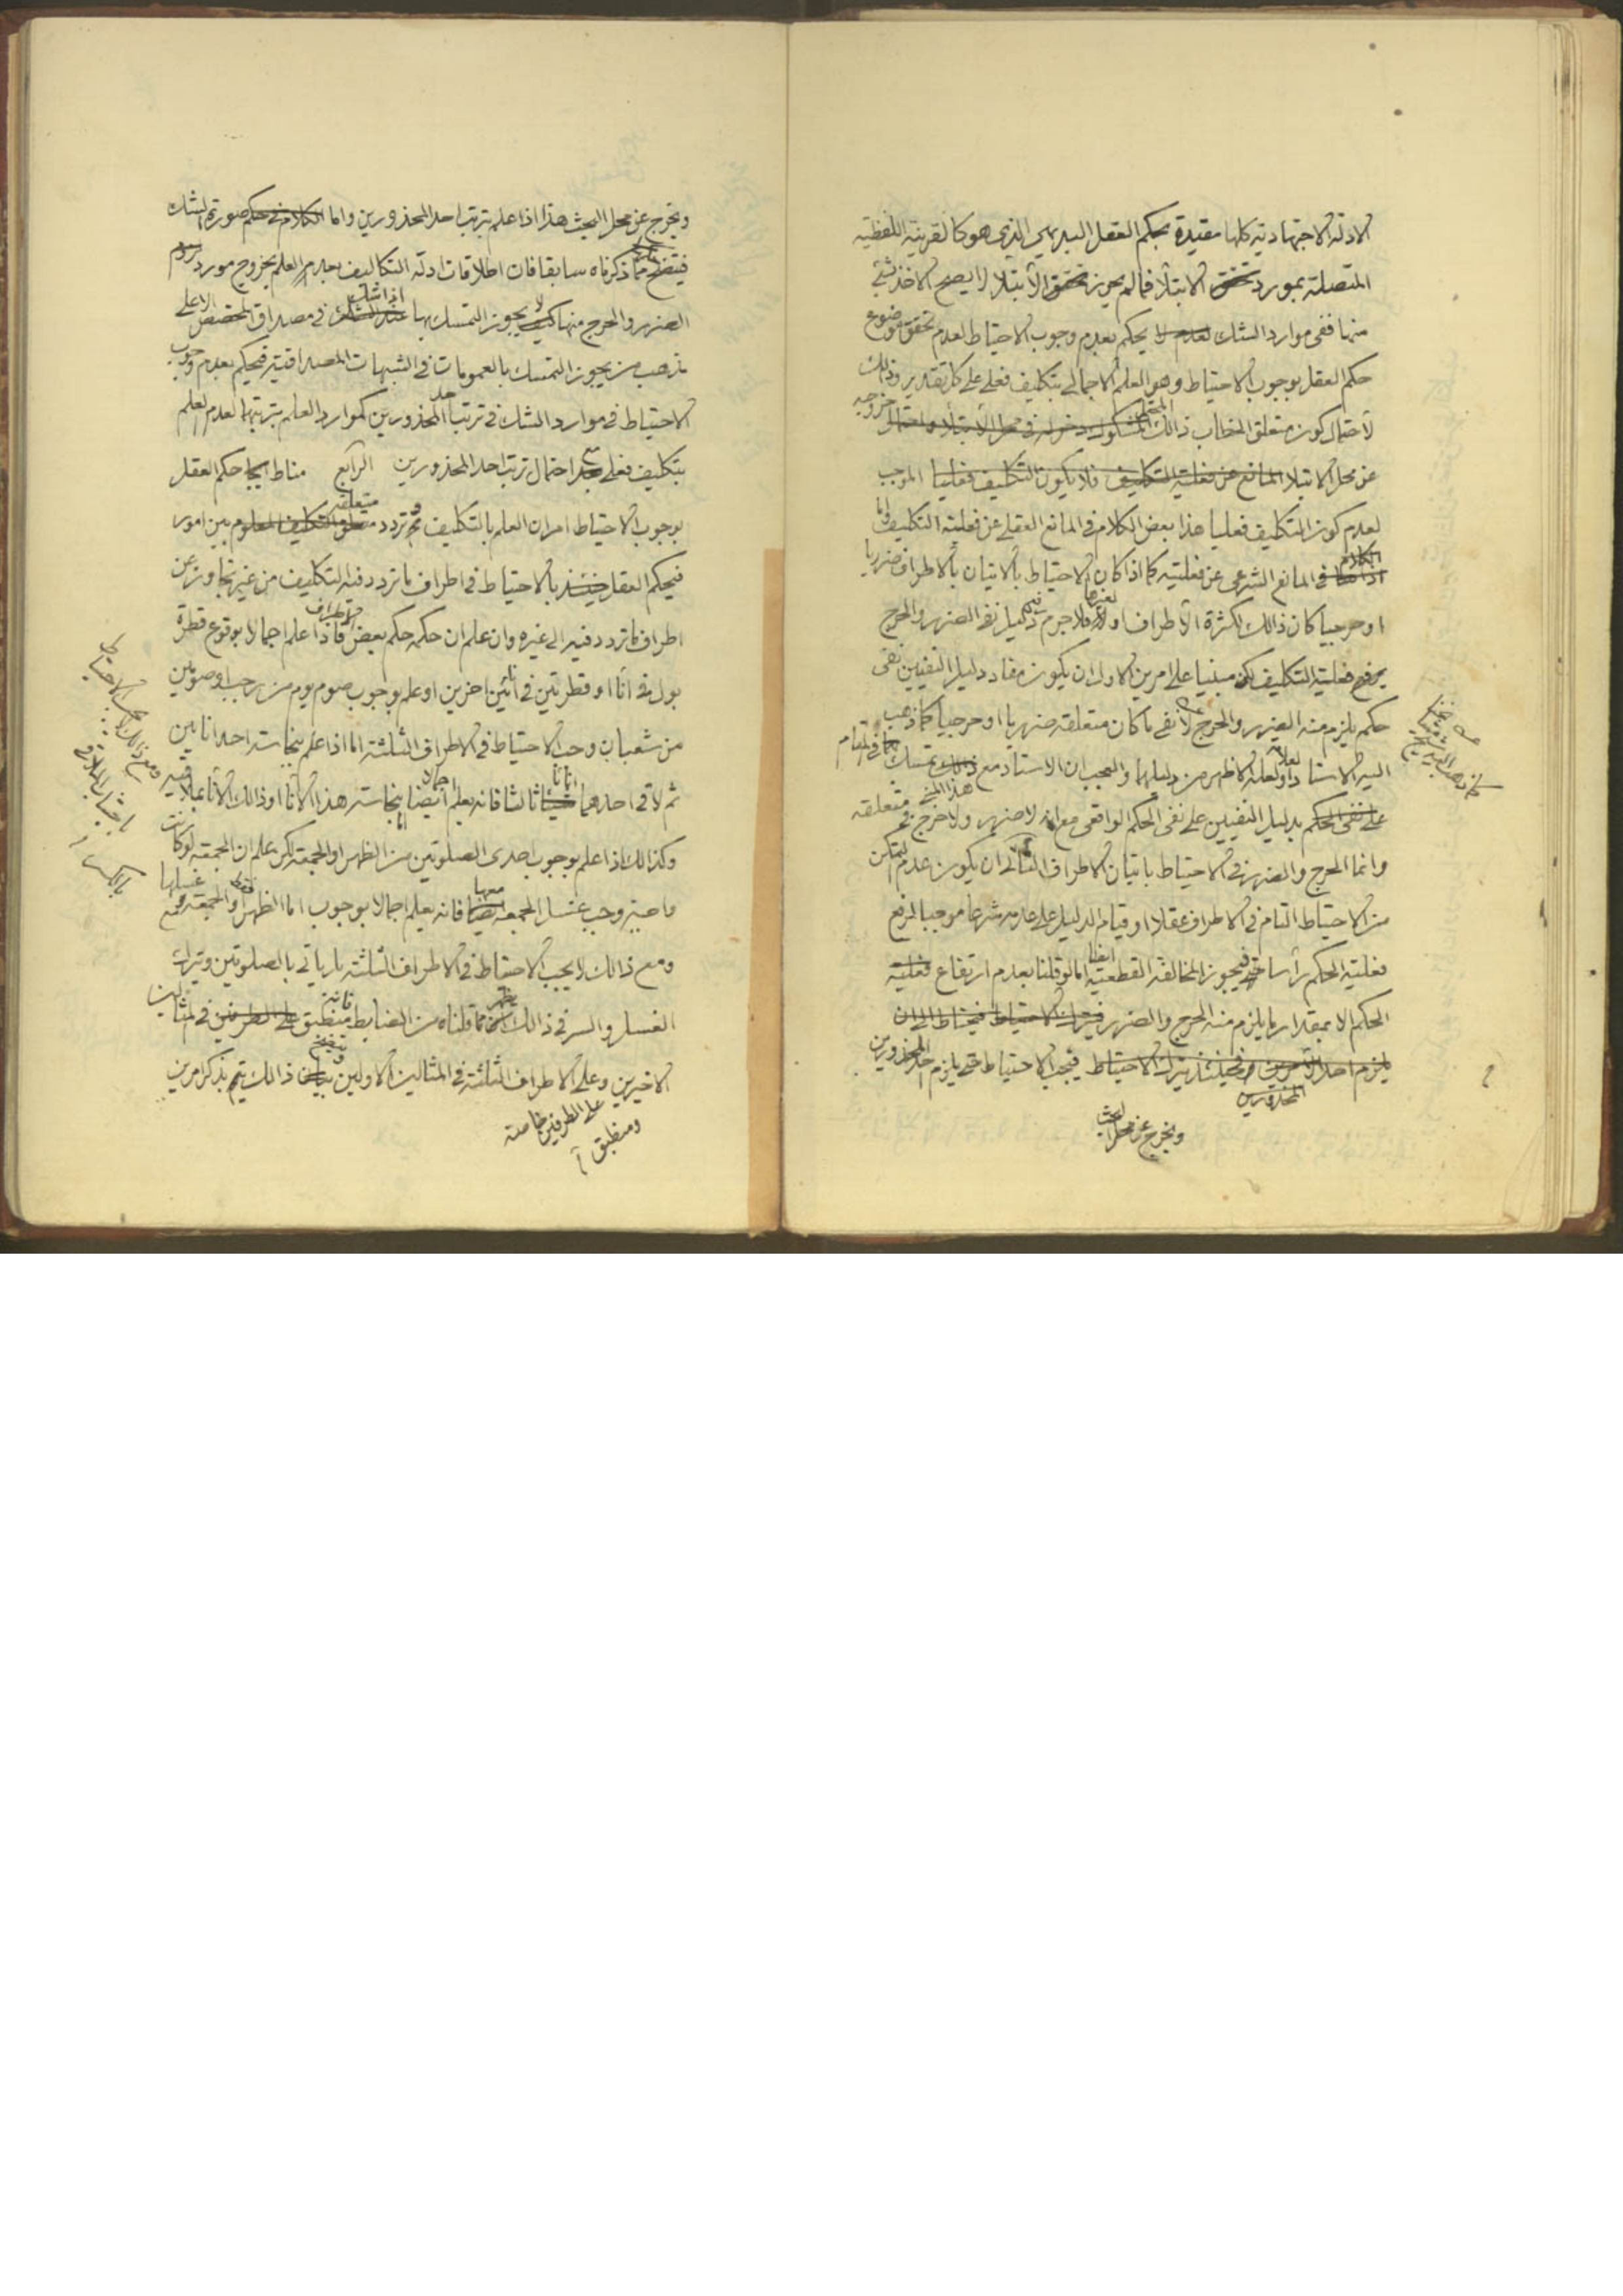 الادلة الاجتهادية كلها مقيدة بحكم العقل البديهي الذي هو كالقرينة اللفظية
المتصلة بمورد تحقق الابتلا فمالم يحرز تحقق الابتلا لا يصح الاخذ بشئ
منها ففي موارد الشك لعدم لا يحكم بعدم وجوب الاحتياط لعدم تحقق موضوع
حكم العقل بوجوب الاحتياط وهو العلم الاجمالي بتكليف فعلي على كل تقدير وذلك
لاحتمال كون متعلق الخطاب ذالك المشكوك دخوله في محل الابتلا واحتمال خروجه
عن محل الابتلا المانع عن فعلية التكليف فلا يكون التكليف فعليا الموجب
لعدم كون التكليف فعليا هذا بعض الكلام في المانع العقلي عن فعلية التكليف واما
الكلام في المانع الشرعي عن فعليته كما اذا كان الاحتياط بالاتيان بالاطراف ضرريا
او حرجيا كان ذالك لكثرة الاطراف او لغيرها فلا جرم دليل نفي الضرر والحرج
يرفع فعلية التكليف لكن مبنيا على امرين الاول ان يكون مفاد دليل النفيين نفي
حكم يلزم منه الضرر والحرج لا نفي ما كان متعلقه ضرريا او حرجيا كما ذهب
اليه الاستاد ولعله الاظهر من دليلهما والعجب ان الاستاد مع ذالك تمسك في المقام
على نفي الحكم بدليل النفيين على نفي الحكم الواقعي مع انه لا ضرر ولا حرج في متعلقه
وانما الحرج والضرر في الاحتياط باتيان الاطراف الثاني ان يكون عدم التمكن
من الاحتياط التام في الاطراف عقلا او قيام الدليل على عدمه شرعا موجبا لرفع
فعلية الحكم رأسا فيجوز المخالفة القطعية ايضا اما لو قلنا بعدم ارتفاع فعلية
الحكم الا بمقدار ما يلزم منه الحرج والضرر فيترك الاحتياط فيحتاط الى ان
يلزم احد الامرين وحينئذ يترك الاحتياط فيجب الاحتياط حتى يلزم احد المحذورين
المحذورين
ويخرج عن محل البحث
ويخرج عن محل البحث هذا اذا علم بترتب احد المحذورين واما الكلام في حكم صورة الشك
فيتضح مما ذكرناه سابقا فان اطلاقات ادلة التكاليف بعد العلم بخروج مورد لزوم
الضرر والحرج منها لا يجوز التمسك بها اذا شك في مصداق المخصص الا على
مذهب من يجوز التمسك بالعمومات في الشبهات المصداقية فيحكم بعدم وجوب
الاحتياط في موارد الشك في ترتب احد المحذورين كموارد العلم بترتبهما لعدم العلم
بتكليف فعلي مع احتمال ترتب احد المحذورين الرابع مناط حكم العقل
بوجوب الاحتياط امران العلم بالتكليف و تردد متعلقه متعلق التكليف المعلوم بين امور
فيحكم العقل حينئذ بالاحتياط في اطراف ما تردد فيه التكليف من غير تجاوز عن
اطراف ما تردد فيه الى غيره وان علم ان حكمه حكم بعض الاطراف فاذا علم اجمالا بوقوع قطرة
بول في انا او قطرتين في انائين اخرين او علم بوجوب صوم يوم من رجب او صومين
من شعبان وجب الاحتياط في الاطراف الثلثة اما اذا علم بنجاسة احد انائين
ثم لاقى احدهما انائا ثالثا فانه يعلم اجمالا ايضا بنجاسة هذا الانا او ذالك الانا
وكذالك اذا علم بوجوب احدى الصلوتين من الظهر او الجمعة لكن علم ان الجمعة لو كانت
واجبة وجب غسل الجمعة معها فانه يعلم اجمالا بوجوب اما الظهر فقط او الجمعة مع غسلها
ومع ذالك لا يجب الاحتياط في الاطراف الثلثة بل ياتي بالصلوتين ويترك
الغسل والسر في ذالك يظهر مما قلناه من الضابط فانه منطبق على الطرفين في المثالين
الاخيرين وعلى الاطراف الثلثة في المثالين الاولين وتوضيح ذالك يتم بذكر امرين
على الطرفين خاصة
ومنطبق
ومع ذالك لا يجب الاحتياط